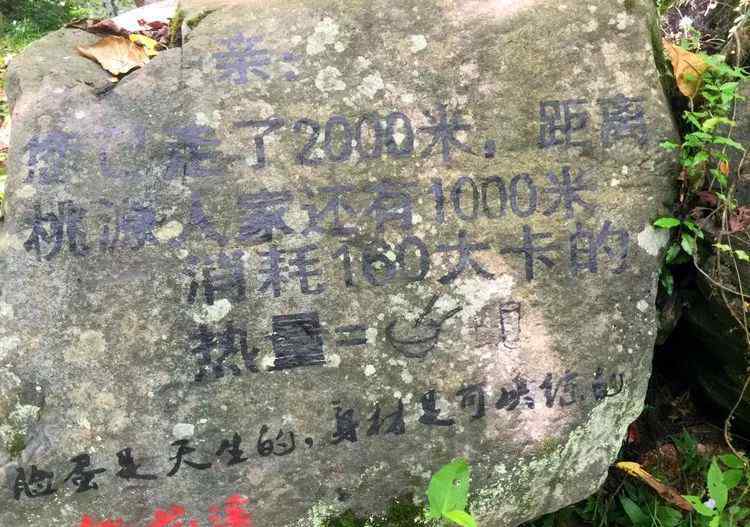 亲：
您已走了2000米，距离
桃源人家还有1000米
消耗160大卡的
热量=
脸蛋是天生的，身材是可以练的